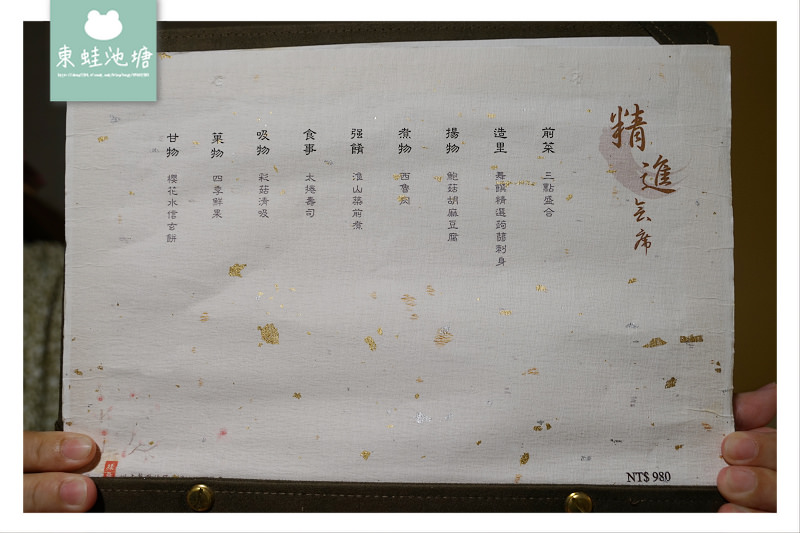 東蛙池塘
精進会席
前菜 三點盛合
造里 舞饌精選蒟蒻刺身
揚物 鮑菇胡麻豆腐
煮物 西魯肉
强餚 淮山藥煎煮
食事 太捲壽司
吸物 彩菇清吸
菓物 四季鮮果
甘物 櫻花水信玄餅
NT$ 980